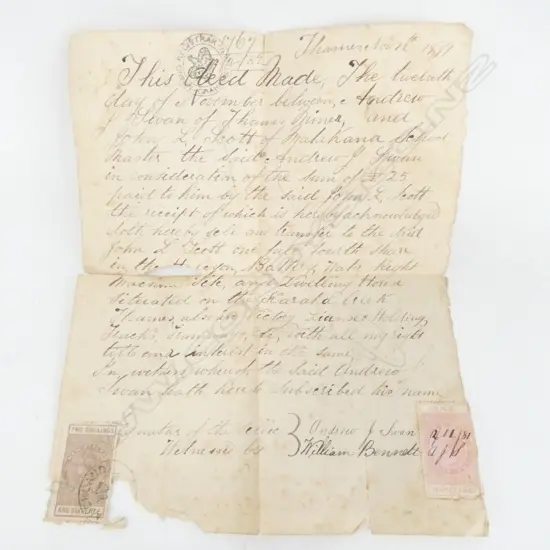 1767
Thames Nov 12th 1881
This Deed Made, The twelvth
day of November between Andrew
J Swan of Thames Miner, and
John L. Scott of Matakana School
Master the Said Andrew J Swan
in consideration of the sum of £25
paid to him by the said John L Scott
the receipt of which is hereby acknowledged
doth hereby sell and transfer to the said
John L Scott one full fourth share
in the Battery, Water Right
Machine Site, and Dwelling House
situated on the Karaka Creek
Thames, also in
Tracks, Tramways, &c, with all my right
title and interest in the same,
In witness whereof the Said Andrew
Swan hath hereto subscribed his name
Signature of the
Witnessed by } Andrew J Swan
William Bennett
TWO SHILLINGS
AND SIXPENCE
12/11/81
A J S